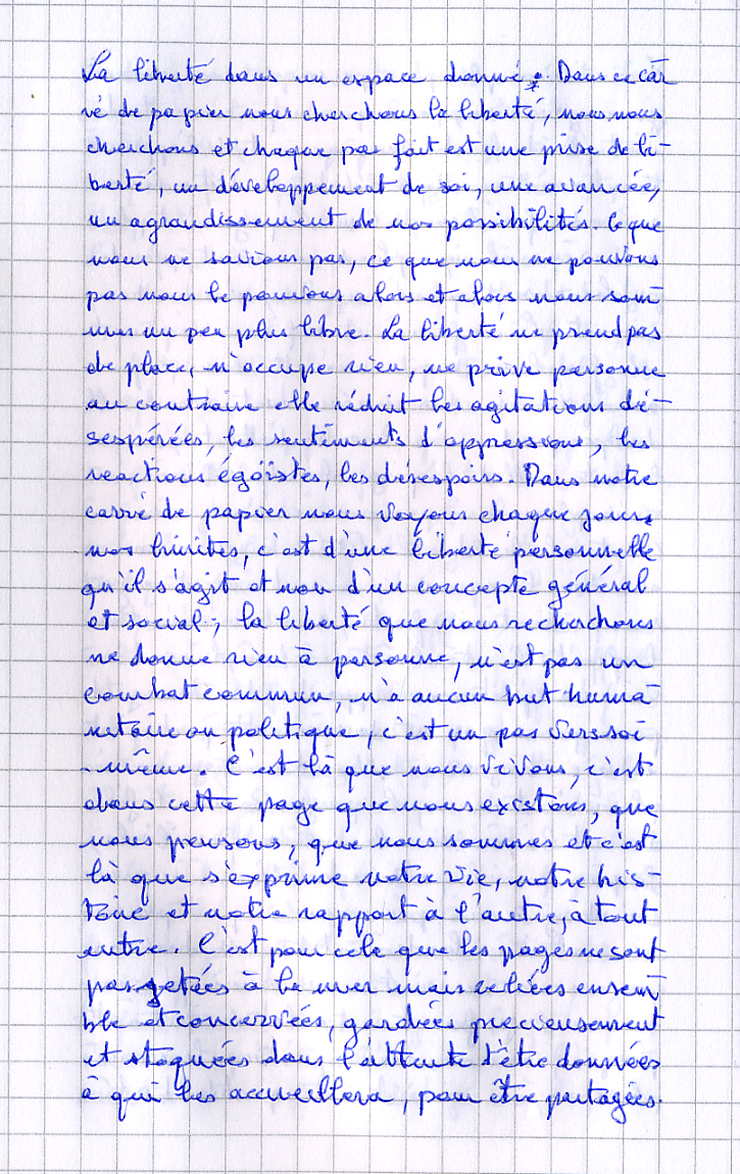 La liberté dans un espace donné : Dans ce car
ré de papier nous cherchons la liberté, nous nous
cherchons et chaque pas fait est une prise de li-
berté, un développement de soi, une avancée,
un agrandissement de nos possibilités. Ce que
nous ne savions pas, ce que nous ne pouvions
pas nous le pouvons alors et alors nous som
mes un peu plus libre. La liberté ne prend pas
de place, n'occupe rien, ne prive personne
au contraire elle réduit les agitations dé-
sespérées, les sentiments d'oppressions, les
reactions égoïstes, les désespoirs. Dans notre
carré de papier nous voyons chaque jour
nos limites, c'est d'une liberté personnelle
qu'il s'agit et non d'un concepte général
et social ; la liberté que nous recherchons
ne donne rien à personne, n'est pas un
combat commun, n'a aucun but huma
nitaire ou politique, c'est un pas vers soi
-même. C'est là que nous vivons, c'est
dans cette page que nous existons, que
nous pensons, que nous sommes et c'est
là que s'exprime notre vie, notre his-
toire et notre rapport à l'autre, à tout
autre. C'est pour cela que les pages ne sont
pas jetées à la mer mais reliées ensem
ble et concervées, gardées precieusement
et stoquées dans l'attente d'être données
à qui les accueillera, pour être partagées.